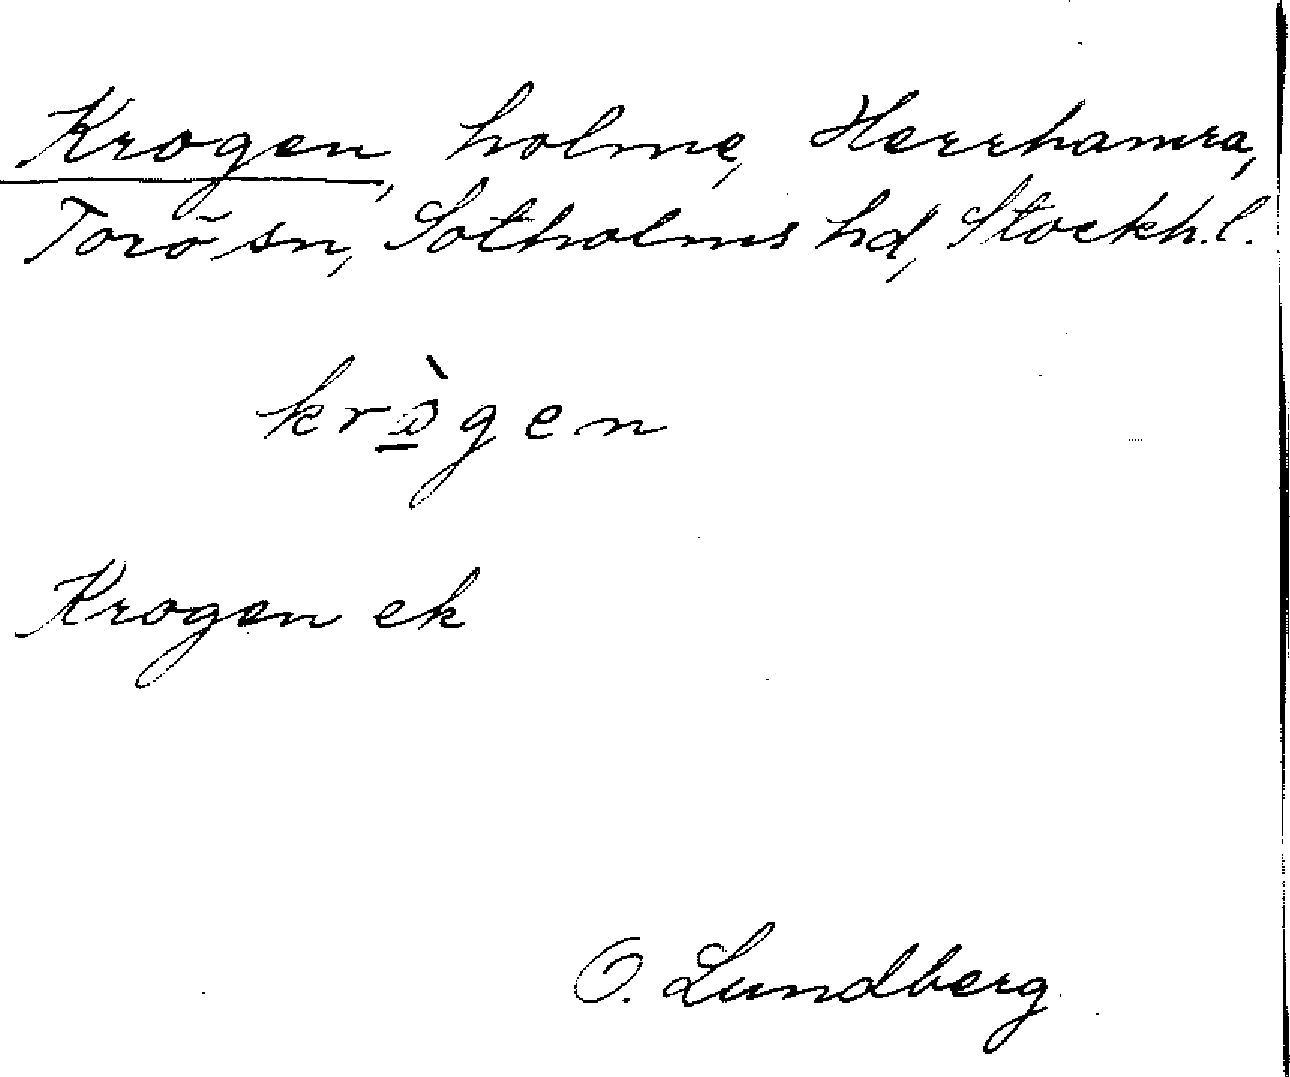 Krogen, holme, Herrhamra,
Torö sn, Sotholms hd, Stockh. l.
krògen
Krogen ek
O. Lundberg